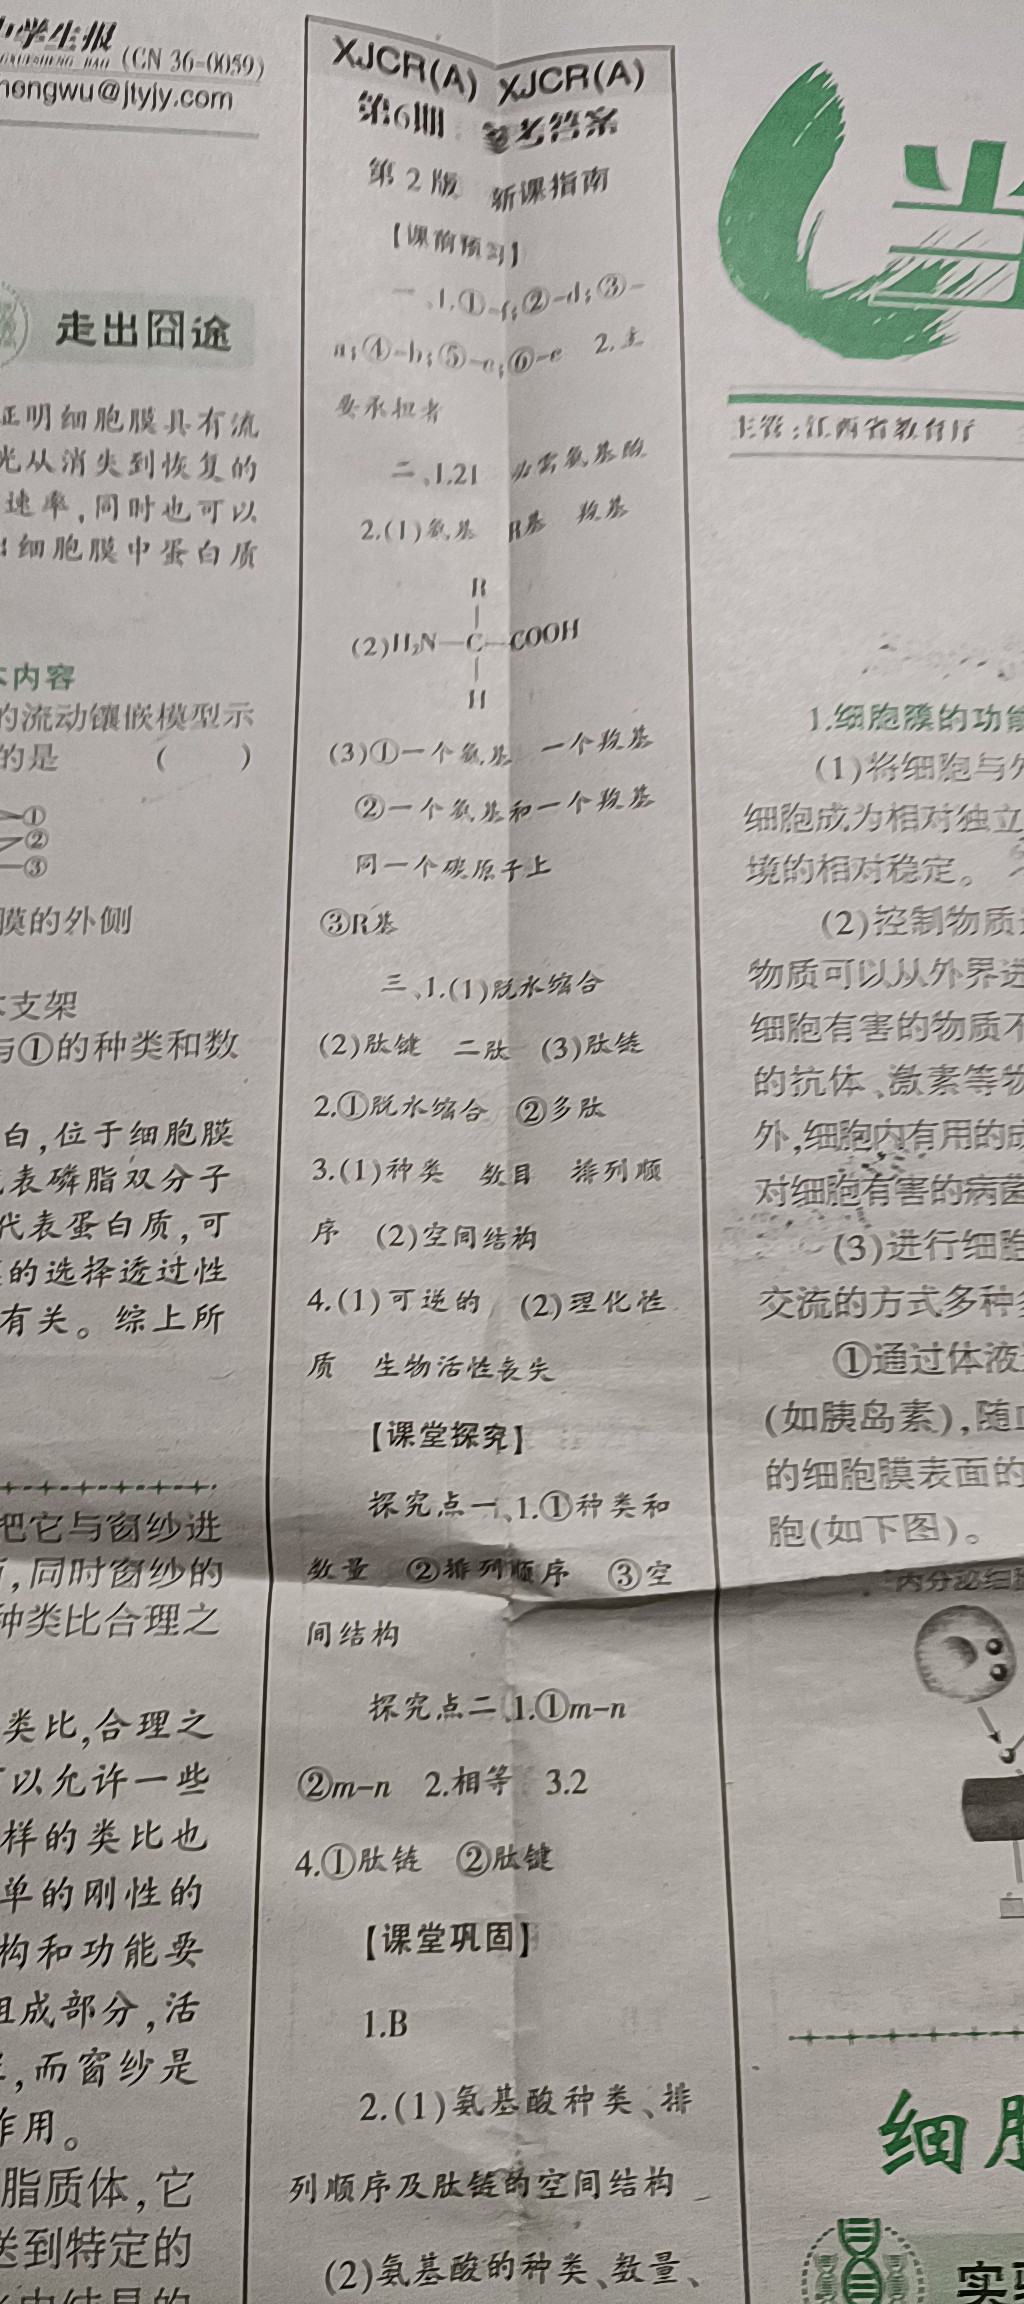 中学生报
(CN 36-0059)
hengwu@jtyjy.com
走出囧途
证明细胞膜具有流
光从消失到恢复的
速率,同时也可以
出细胞膜中蛋白质
本内容
的流动镶嵌模型示
的是 ( )
①
②
③
膜的外侧
本支架
与①的种类和数
白,位于细胞膜
代表磷脂双分子
代表蛋白质,可
的选择透过性
有关。综上所
把它与窗纱进
,同时窗纱的
种类比合理之
类比,合理之
可以允许一些
样的类比也
单的刚性的
构和功能要
组成部分,活
,而窗纱是
作用。
脂质体,它
送到特定的
XJCR(A) XJCR(A)
第6期 参考答案
第2版 新课指南
【课前预习】
一、1.①-f;②-d;③-
a;④-b;⑤-c;⑥-e 2.主
要承担者
二、1.21 必需氨基酸
2.(1)氨基 R基 羧基
R
(2)H₂N—C—COOH
H
(3)①一个氨基 一个羧基
②一个氨基和一个羧基
同一个碳原子上
③R基
三、1.(1)脱水缩合
(2)肽键 二肽 (3)肽链
2.①脱水缩合 ②多肽
3.(1)种类 数目 排列顺
序 (2)空间结构
4.(1)可逆的 (2)理化性
质 生物活性丧失
【课堂探究】
探究点一、1.①种类和
数量 ②排列顺序 ③空
间结构
探究点二、1.①m-n
②m-n 2.相等 3.2
4.①肽链 ②肽键
【课堂巩固】
1.B
2.(1)氨基酸种类、排
列顺序及肽链的空间结构
(2)氨基酸的种类、数量、
主管:江西省教育厅
1.细胞膜的功能
(1)将细胞与外
细胞成为相对独立
境的相对稳定。
(2)控制物质进
物质可以从外界进
细胞有害的物质不
的抗体、激素等物
外,细胞内有用的成
对细胞有害的病菌
(3)进行细胞
交流的方式多种多
①通过体液
(如胰岛素),随血
的细胞膜表面的
胞(如下图)。
内分泌细胞
细胞
实验